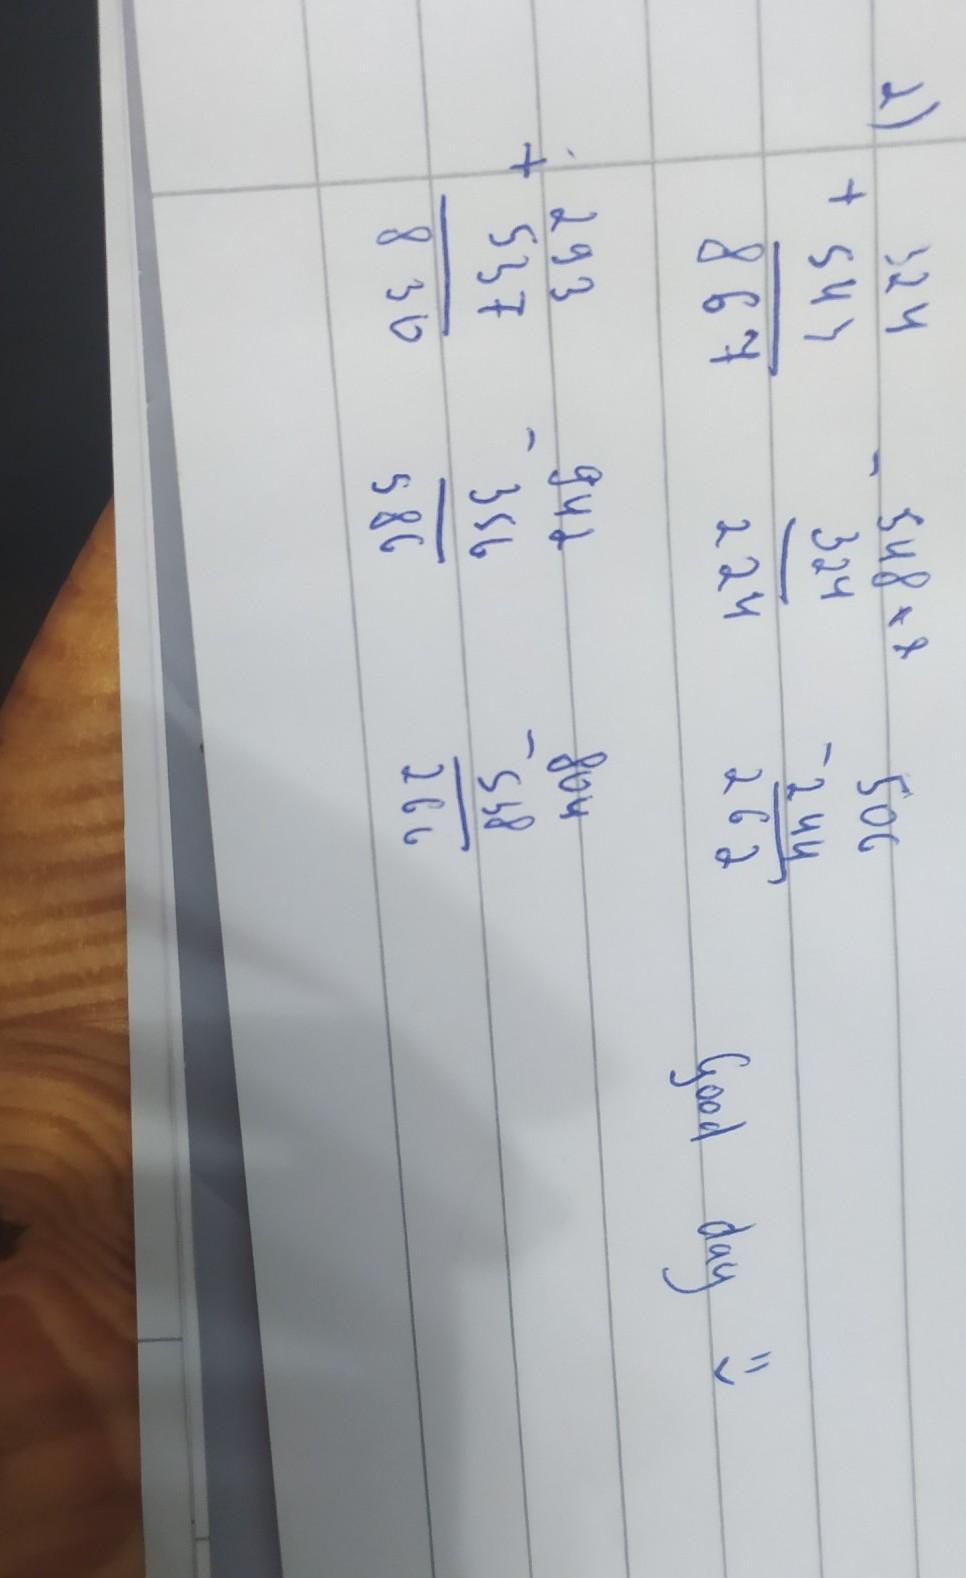 2) 324 - 548 506
+ 543 324 - 244
867 224 262
Good day
293 - 942 - 804
+ 537 356 538
830 586 266